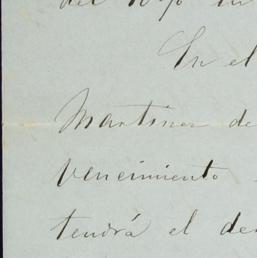 del 10% en
En el
Martinez de
vencimiento
tendrá el de